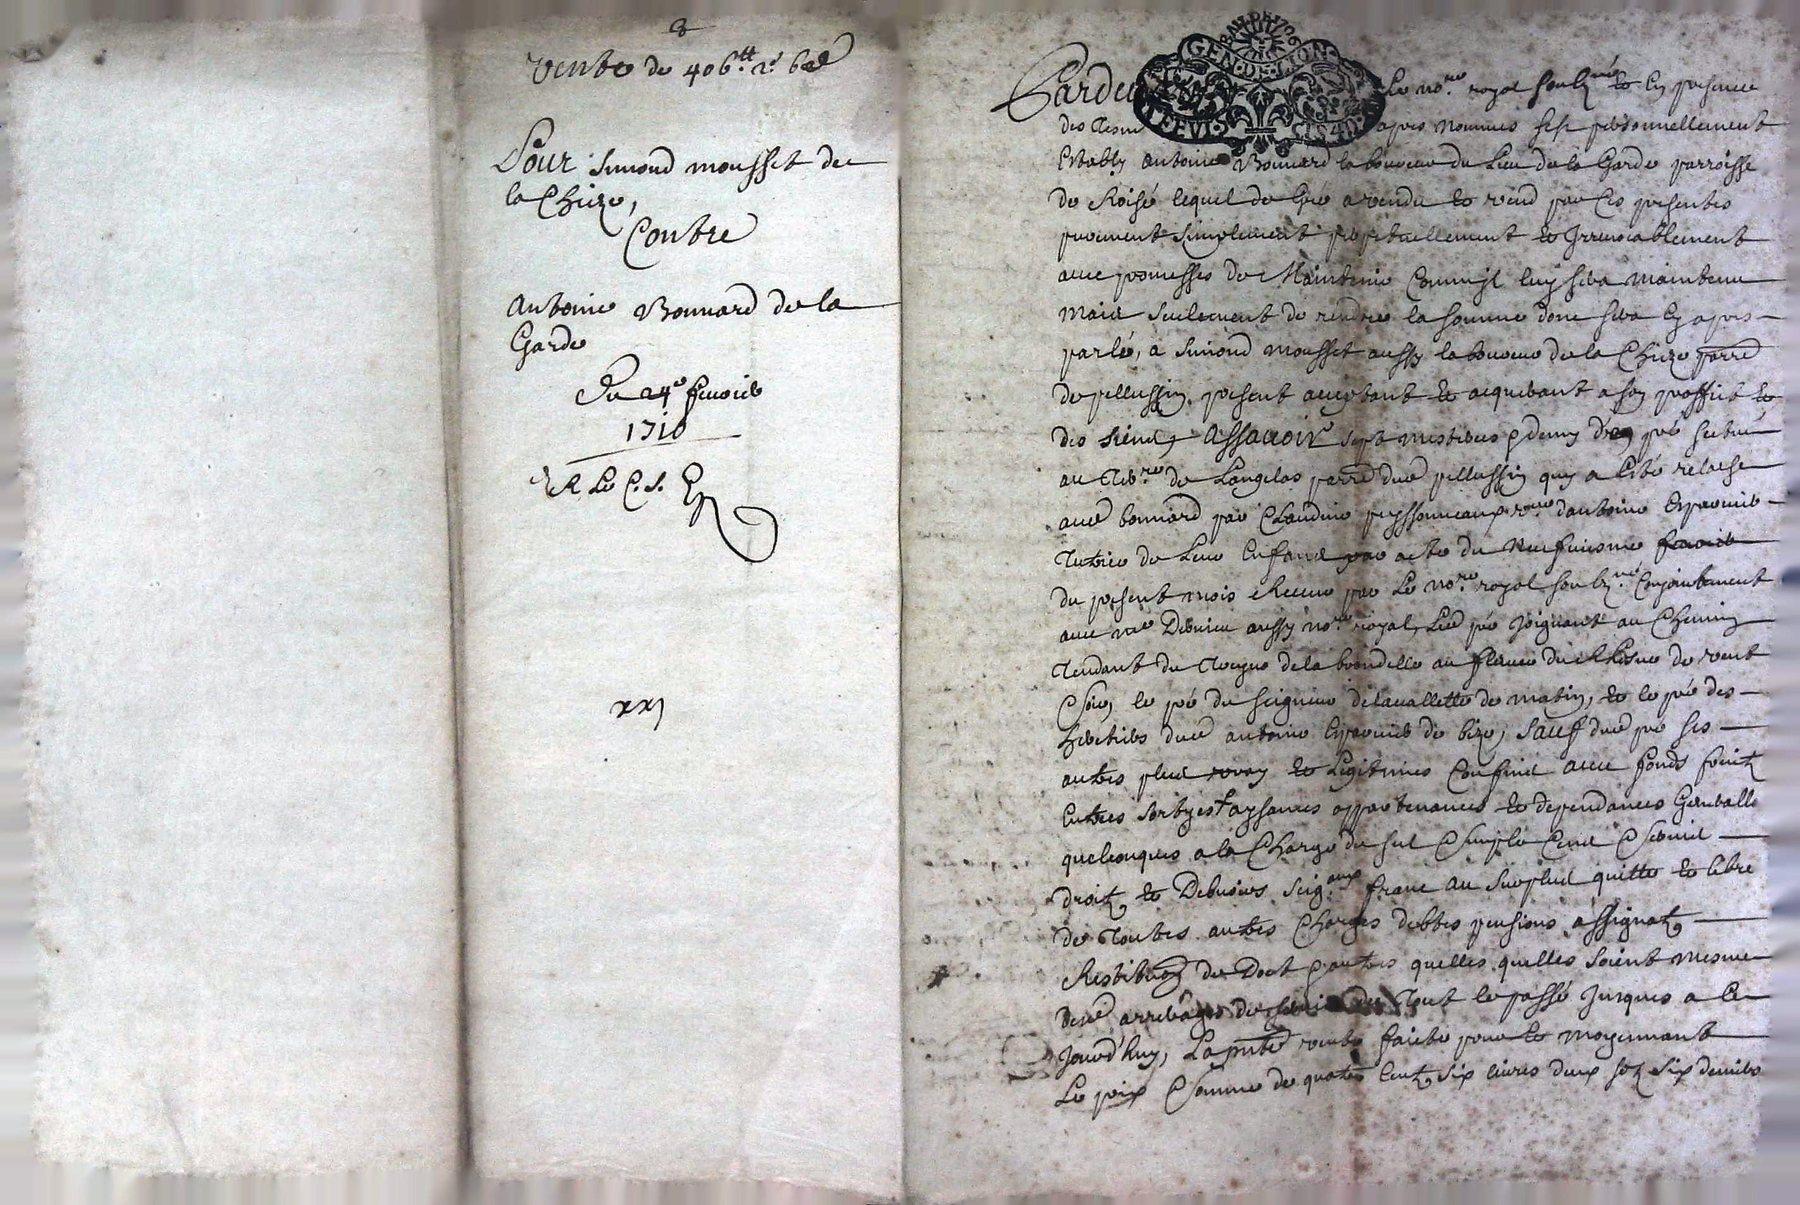 8
Vente de 406ᵗᵗ 2ˢ 6d
Pour Simond mousset de
la Chieze,
Contre
Antoine Bonnard de la
Garde
Du 24e feuvrier
1710
R Le C. S.
xxj
BAU DE 1706
GEN · DE · LION
Pardeu Le nore. royal soubzné et En presence
des Tesm apres nommes fust personnellement
Estably Antoine Bonnard laboureur du Lieu de la Garde parroisse
de Roisé lequel de gré a vendu et vend par Ces presentes
purement Simplement perpetuellement et Irreuocablement
auec promesses de Maintenir Comm'jl luy sera maintenu
Mais seulement de rendre la somme dont sera Cy apres
parlé, a Simond Mousset aussy laboureur de la Chieze parre
de pellussin, present acceptant et acquerant a son proffict et
des siens, Assauoir sept mestieres & demy d'un pré scitué
au Terre. de Langelas parre dud pellussin quy a Esté relaché
aud bonnard par Claudine peyssonneaux veue d'antoine
Tutrice de Leur Enfans par acte du Neufuieme feuvrier
du present mois Receu par Le nore. royal soubzné. Conjointement
auec me Deurieu aussy nore royal, Led pré Joignant au Chemin
Tendant du de la au fleuve du Rhosne de vent
& soir, le pré du seigneur delauallette de matin, et le pré des
heritiers dud antoine de bize, Sauf dud pré ses
autres plus vray et Legitimes Confins auec fonds fruitz
Entrées sortyes aysances appartenances et dependances Generalles
quelconques a la Charge du sul & simple Cens & seruis
droitz et Debuoirs seigaux franc au surplus quitte et libre
de Toutes autres Charges debtes pensions assignatz
Restitution de Doct & autres quelles quelles soient mesme
Desd arrérages de seruis du Tout le passé Jusques a Ce
Jourd'huy, La pnte vente faicte pour et moyennant
Le prix & somme de quatre Centz six liures deux solz six deniers